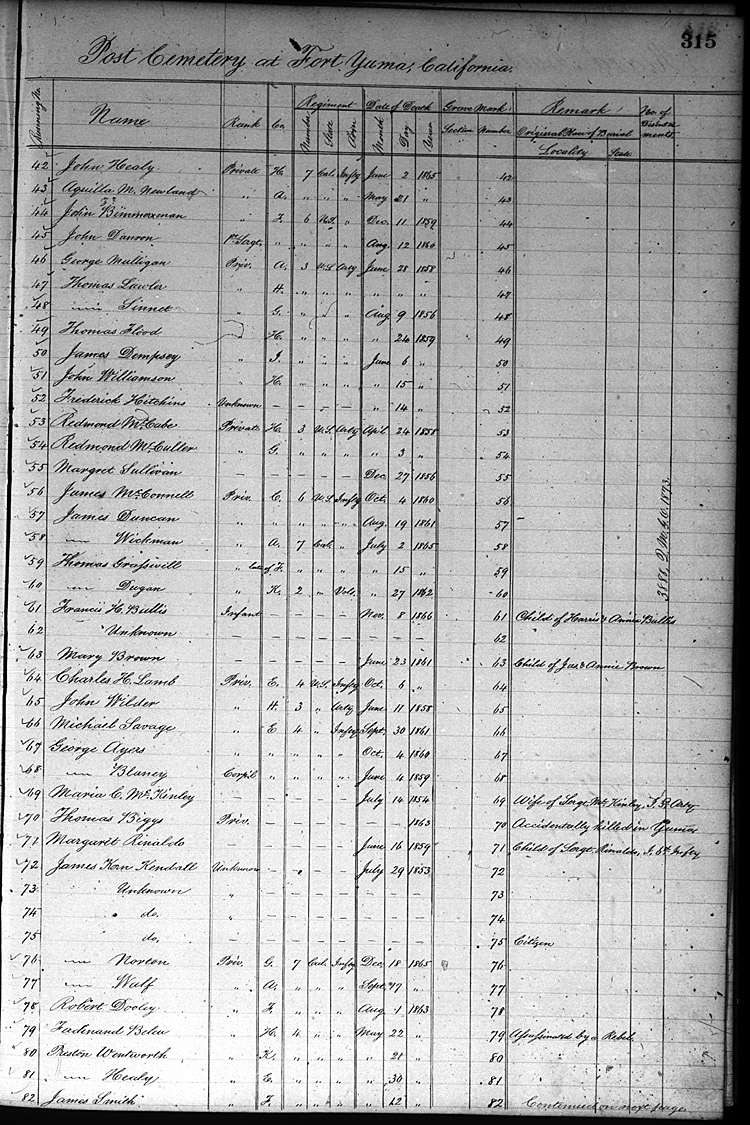 315
Post Cemetery at Fort Yuma, California.
Running No. Name Rank Co. Regiment Date of Death Grave Mark Remark No. of
Number State Arm Month Day Year Section Number Original Place of Burial
Locality State
42 John Healy Private H. 7 Cal. Infty June 2 1865 42
43 Aquilla M. Newland " A. " " " May 21 " 43
44 John Bimmerman " F. 6 U.S. " Dec. 11 1859 44
45 John Danron 1st Sagt. " " " " Aug. 12 1860 45
46 George Mulligan Priv. A. 3 U.S. Arty June 28 1858 46
47 Thomas Lawler " H. " " " " " " 47
48 — Sinnet " G. " " " Aug 9 1856 48
49 Thomas Flood " H. " " " " 26 1859 49
50 James Dempsey " I. " " " June 6 " 50
51 John Williamson " H. " " " " 15 " 51
52 Frederick Hitchins Unknown — — — — " 14 " 52
53 Redmond McCabe Private H. 3 U.S. Arty Apil 24 1858 53
54 Redmond McCuller " G. " " " " 3 " 54
55 Margret Sullivan — — — — — Dec. 27 1856 55
56 James McConnell Priv. C. 6 U.S. Infty Oct. 4 1860 56
57 James Duncan " " " " " Aug. 19 1861 57
58 — Wickman " A. 7 Cal. " July 2 1865 58
59 Thomas " late of F. " " " " 15 " 59
60 — Dugan " K. 2 " Vols. " 27 1862 60
61 Francis H. Bullis Infant — — — — Nov. 8 1866 61 Child of Harris & Annie Bullis
62 Unknown — — — — — — — — 62
63 Mary Brown — — — — — June 23 1861 63 Child of Jas. & Annie Brown
64 Charles H. Lamb Priv. E. 4 U.S. Infty Oct. 6 " 64
65 John Wilder " H. 3 " Arty June 11 1858 65
66 Michael Savage " E 4 " Infty Sept. 30 1861 66
67 George Ayers " " " " " Oct. 4 1860 67
68 — Blaney Corpil " " " " June 4 1859 68
69 Maria C. McKinley — — — — — July 14 1854 69 Wife of Sergt. McKinley,
70 Thomas Biggs Priv. — — — — — — 1863 70 Accidentally killed in Yuma
71 Margaret Rinaldo — — — — — June 16 1859 71 Child of Sergt. Rinaldo, Infty
72 James Kan Kendall Unknown — — — — July 29 1853 72
73 Unknown " — — — — — — — 73
74 do. " — — — — — — — 74
75 do. — — — — — — — — 75 Citizen
76 — Norton Priv. G. 7 Cal. Infty Dec. 18 1865 76
77 — Wulf " A. " " " Sept. 17 " 77
78 Robert Dooley " F. " " " Aug 1 1863 78
79 Fadenand Belew " H. 4 " " May 22 " 79 Assassinated by a Rebel.
80 Preston Wentworth " K. " " " " 21 " 80
81 — Healy " E. " " " " 30 " 81
82 James Smith " F. " " " " 12 " 82 Continued on next page.
Q.M.G.O. 1873.